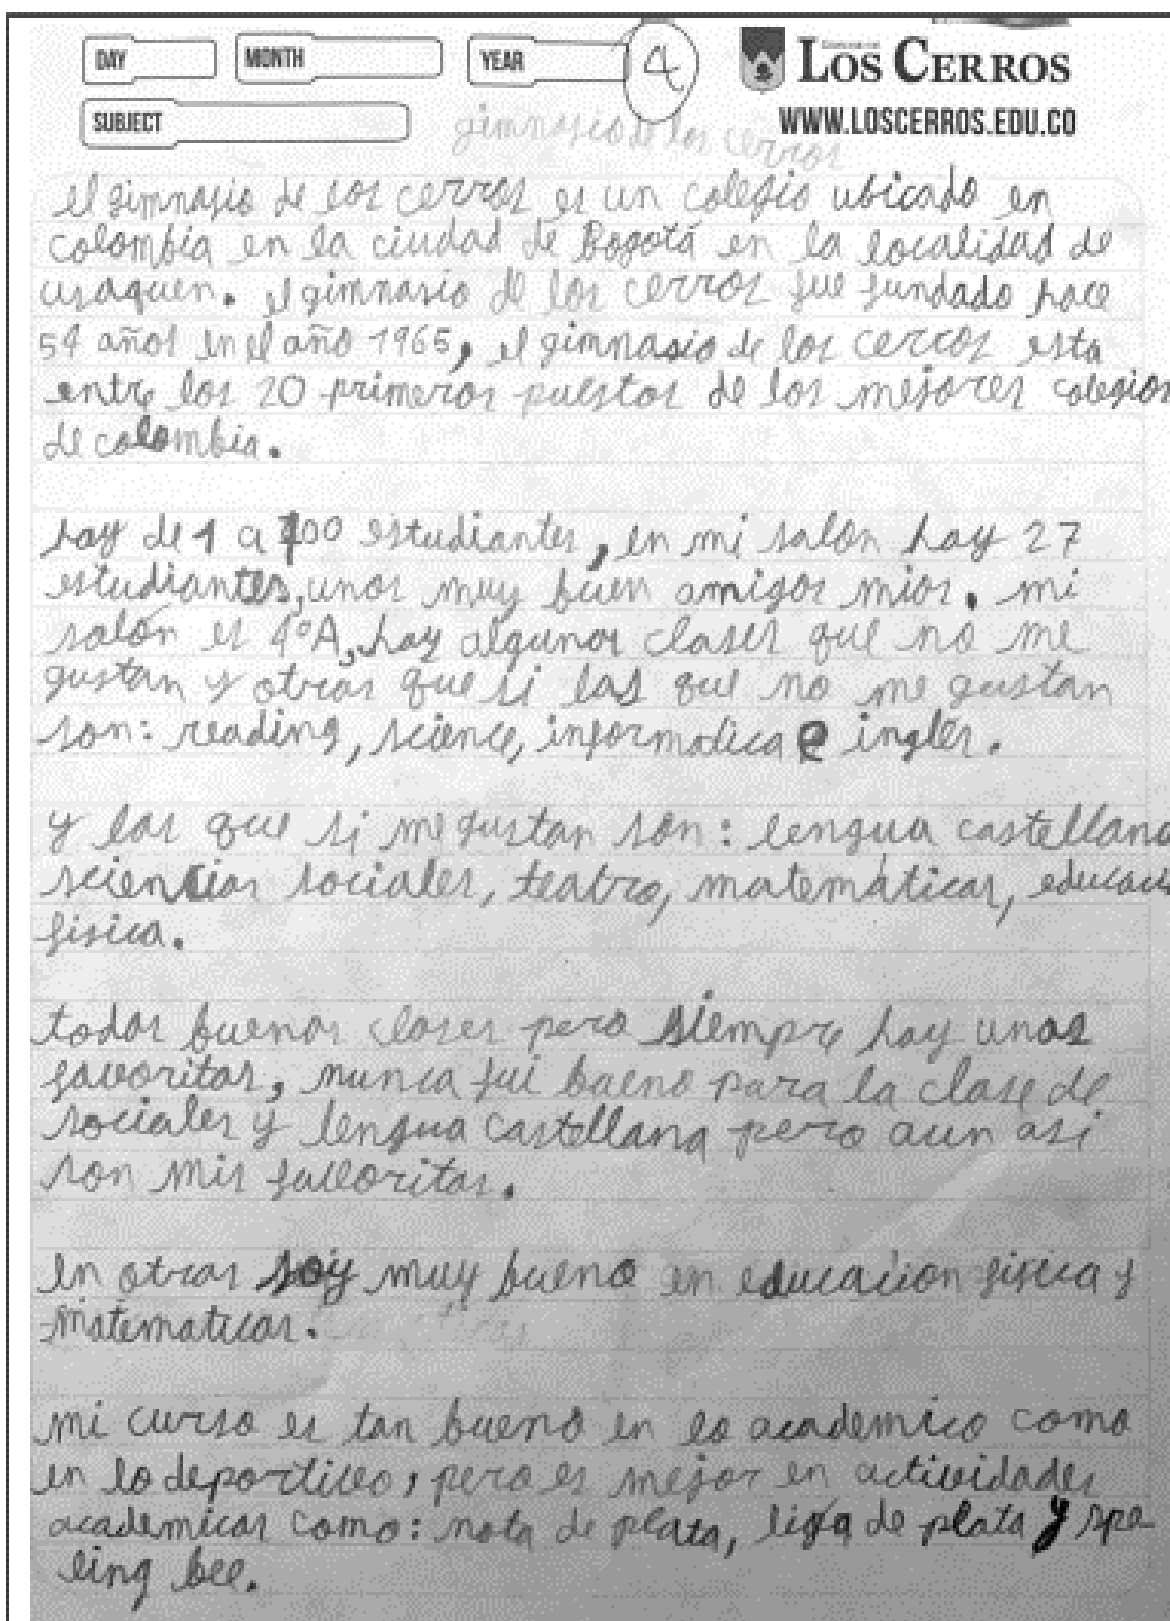 DAY MONTH YEAR 4 LOS CERROS
SUBJECT WWW.LOSCERROS.EDU.CO
gimnasio de los cerros
el gimnasio de los cerros es un colegio ubicado en
colombia en la ciudad de Bogotá en la localidad de
usaquen. el gimnasio de los cerros fue fundado hace
54 años en el año 1965, el gimnasio de los cerros esta
entre los 20 primeros puestos de los mejores colegios
de colombia.
hay de 1 a 100 estudiantes, en mi salón hay 27
estudiantes, unos muy buen amigos mios. mi
salón es 4°A, hay algunos clases que no me
gustan y otras que si las que no me gustan
son: reading, science, informatica e inglés.
y las que si me gustan són: lengua castellana
sciencias sociales, teatro, matemáticas, educaci
fisica.
todas buenas clases pero siempre hay unas
favoritas, nunca fui bueno para la clase de
sociales y lengua castellana pero aun asi
son mis favoritas.
en otras soy muy bueno en educacion fisica y
matematicas.
mi curso es tan bueno en lo academico como
en lo deportivo, pero es mejor en actividades
academicas como: nota de plata, liga de plata y spe
ling bee.